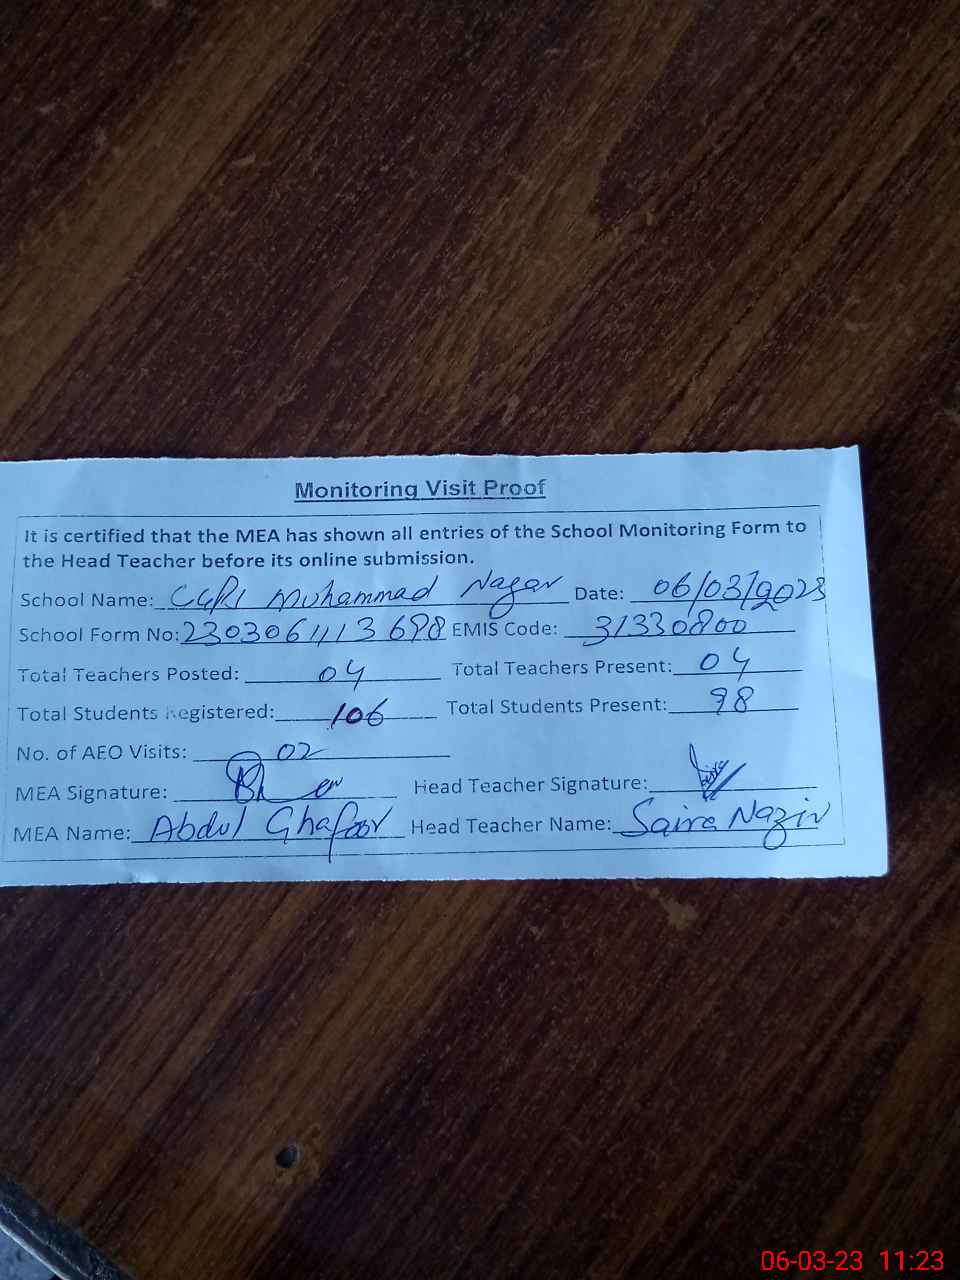 Monitoring Visit Proof
It is certified that the MEA has shown all entries of the School Monitoring Form to
the Head Teacher before its online submission.
School Name: Muhammad Nagar Date: 06/03/2023
School Form No: 2303061113698 EMIS Code: 31330800
Total Teachers Posted: 04 Total Teachers Present: 04
Total Students Registered: 106 Total Students Present: 98
No. of AEO Visits: 02
MEA Signature: Head Teacher Signature:
MEA Name: Abdul Ghafoor Head Teacher Name: Saira Nazir
06-03-23 11:23